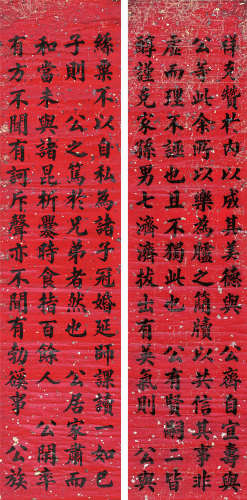 祥克贊於內以成其美德與 公齊自宜與
公等此余所以樂為臚之簡牘以共信其事非
虛而理不誣也且不獨此也 公有賢嗣二皆
醇謹克家孫男七濟濟拔出有英氣則 公與
絲粟不以自私為諸子冠婚延師課讀一如己
子則 公之篤於兄弟者然也 公居家肅而
和當未與諸昆析爨時食指百餘人 公閫率
有方不聞有訶斥聲亦不聞有勃谿事 公族